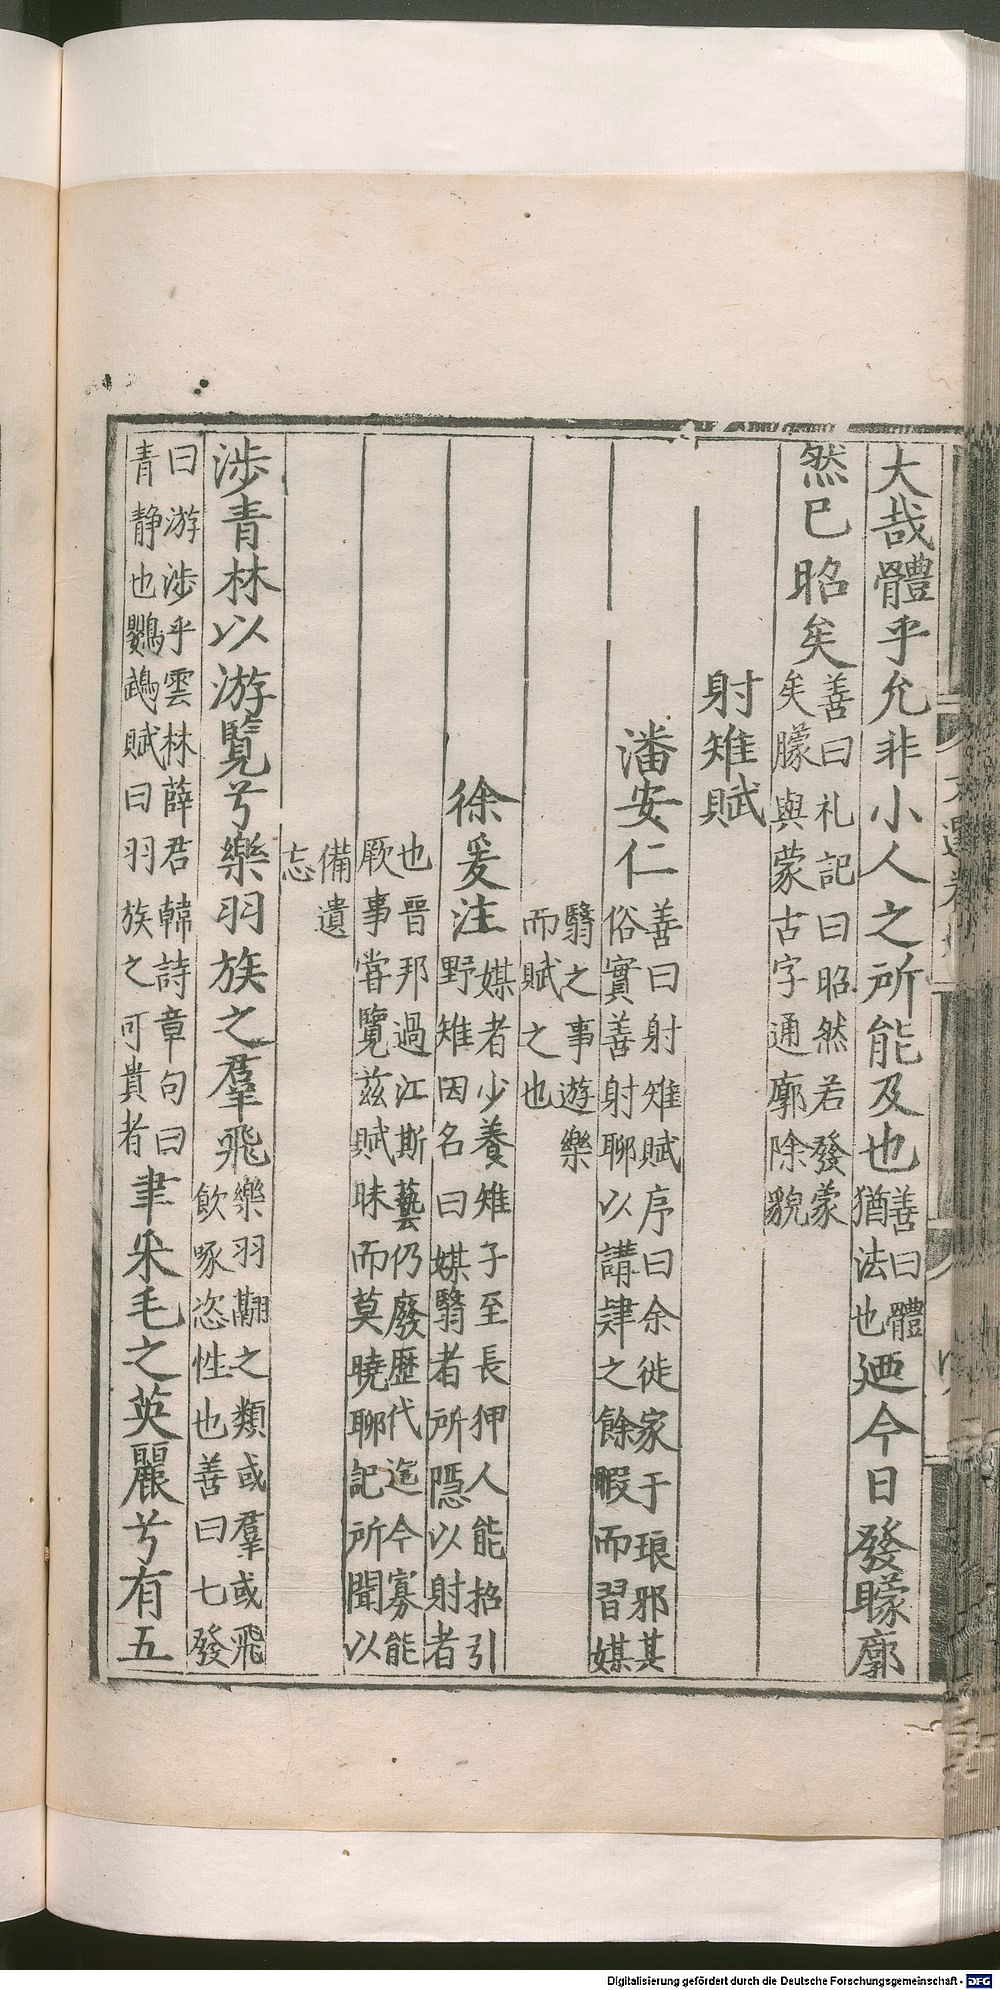 大哉體乎允非小人之所能及也善曰體猶法也廼今日發矇廓
然已昭矣善曰礼記曰昭然若發蒙矣矇與蒙古字通廓除貌
射雉賦
潘安仁善曰射雉賦序曰余徙家于琅邪其俗實善射聊以講肄之餘暇而習媒
翳之事遊樂而賦之也
徐爰注媒者少養雉子至長狎人能招引野雉因名曰媒翳者所隱以射者
也晉邦過江斯藝仍廢歷代迄今寡能厥事嘗覽茲賦昧而莫曉聊記所聞以
備遺忘
涉青林以游覽兮樂羽族之羣飛樂羽翮之類或羣或飛飲啄恣性也善曰七發
曰游涉乎雲林薛君韓詩章句曰青静也鸚鵡賦曰羽族之可貴者聿采毛之英麗兮有五
Digitalisierung gefördert durch die Deutsche Forschungsgemeinschaft - DFG